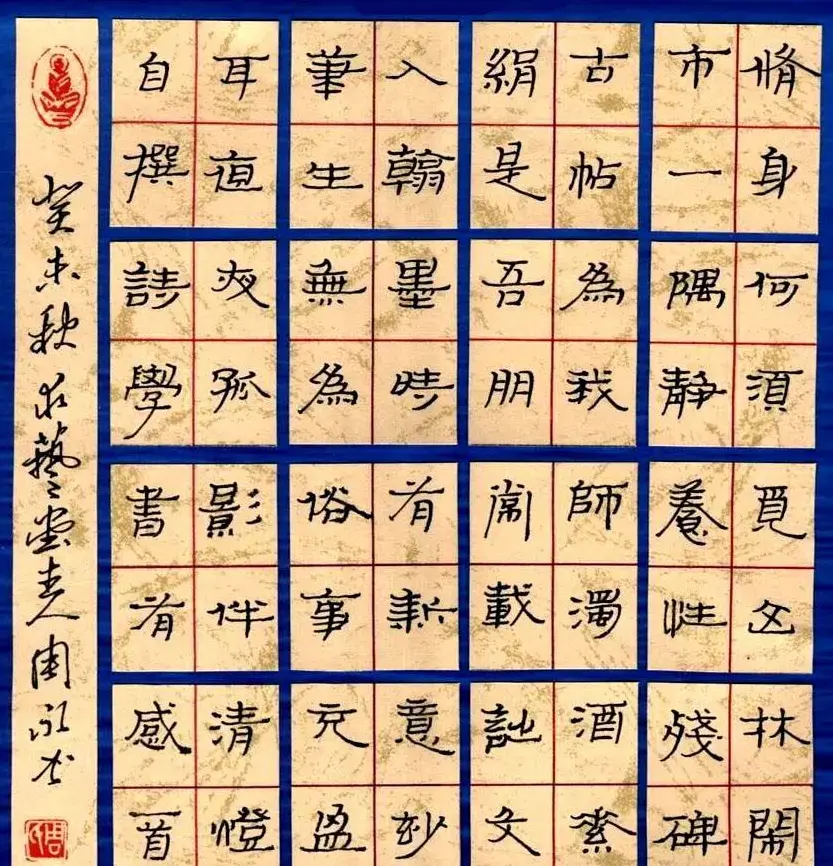 脩身何須覓山林鬧
市一隅靜養性殘碑
古帖為我師濁酒素
絹是吾朋常載文
入翰墨時有新意妙
筆生無為俗事充盈
耳直夜孤影伴清燈
自撰詩學書有感一首
癸未秋求藝堂主人周